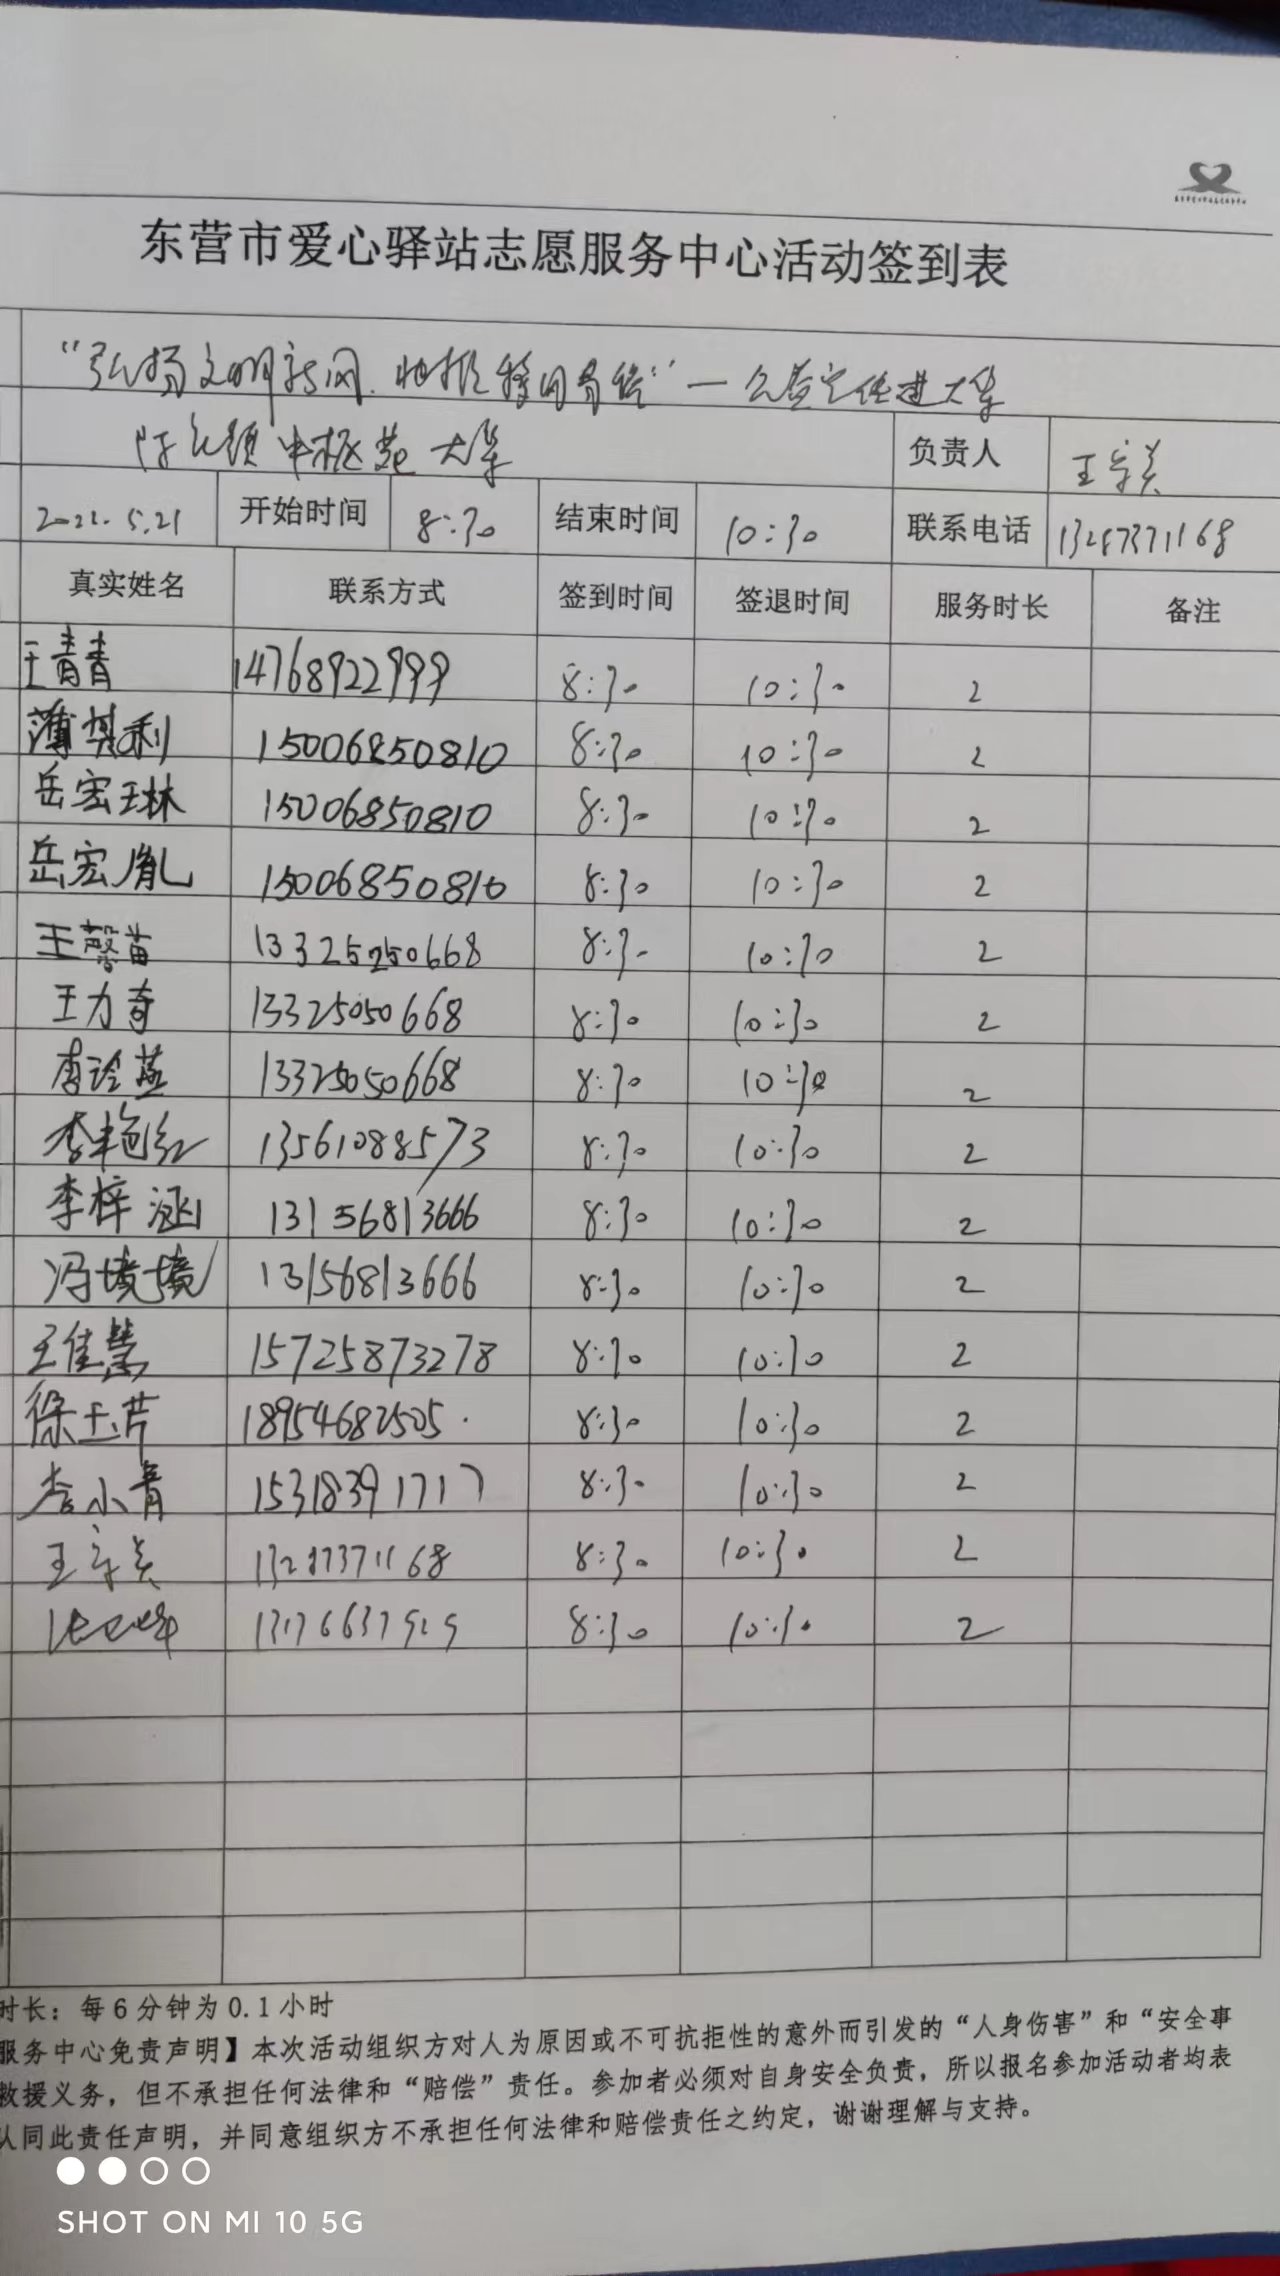 东营市爱心驿站志愿服务中心活动签到表
"弘扬文明新风
大集
负责人 王守美
2022.5.21 开始时间 8:30 结束时间 10:30 联系电话 13287371168
真实姓名 联系方式 签到时间 签退时间 服务时长 备注
王青青 14768922999 8:30 10:30 2
薄其利 15006850810 8:30 10:30 2
岳宏琳 15006850810 8:30 10:30 2
岳宏胤 15006850810 8:30 10:30 2
王馨苗 8:30 10:30 2
王力奇 13325050668 8:30 10:30 2
13325050668 8:30 10:30 2
李艳红 13561088573 8:30 10:30 2
李梓涵 13156813666 8:30 10:30 2
冯境境 13156813666 8:30 10:30 2
王佳慧 15725873278 8:30 10:30 2
徐玉芹 18954682505 8:30 10:30 2
李小青 15318391717 8:30 10:30 2
王守美 13287371168 8:30 10:30 2
8:30 10:30 2
时长：每6分钟为0.1小时
服务中心免责声明】本次活动组织方对人为原因或不可抗拒性的意外而引发的“人身伤害”和“安全事
救援义务，但不承担任何法律和“赔偿”责任。参加者必须对自身安全负责，所以报名参加活动者均表
认同此责任声明，并同意组织方不承担任何法律和赔偿责任之约定，谢谢理解与支持。
SHOT ON MI 10 5G